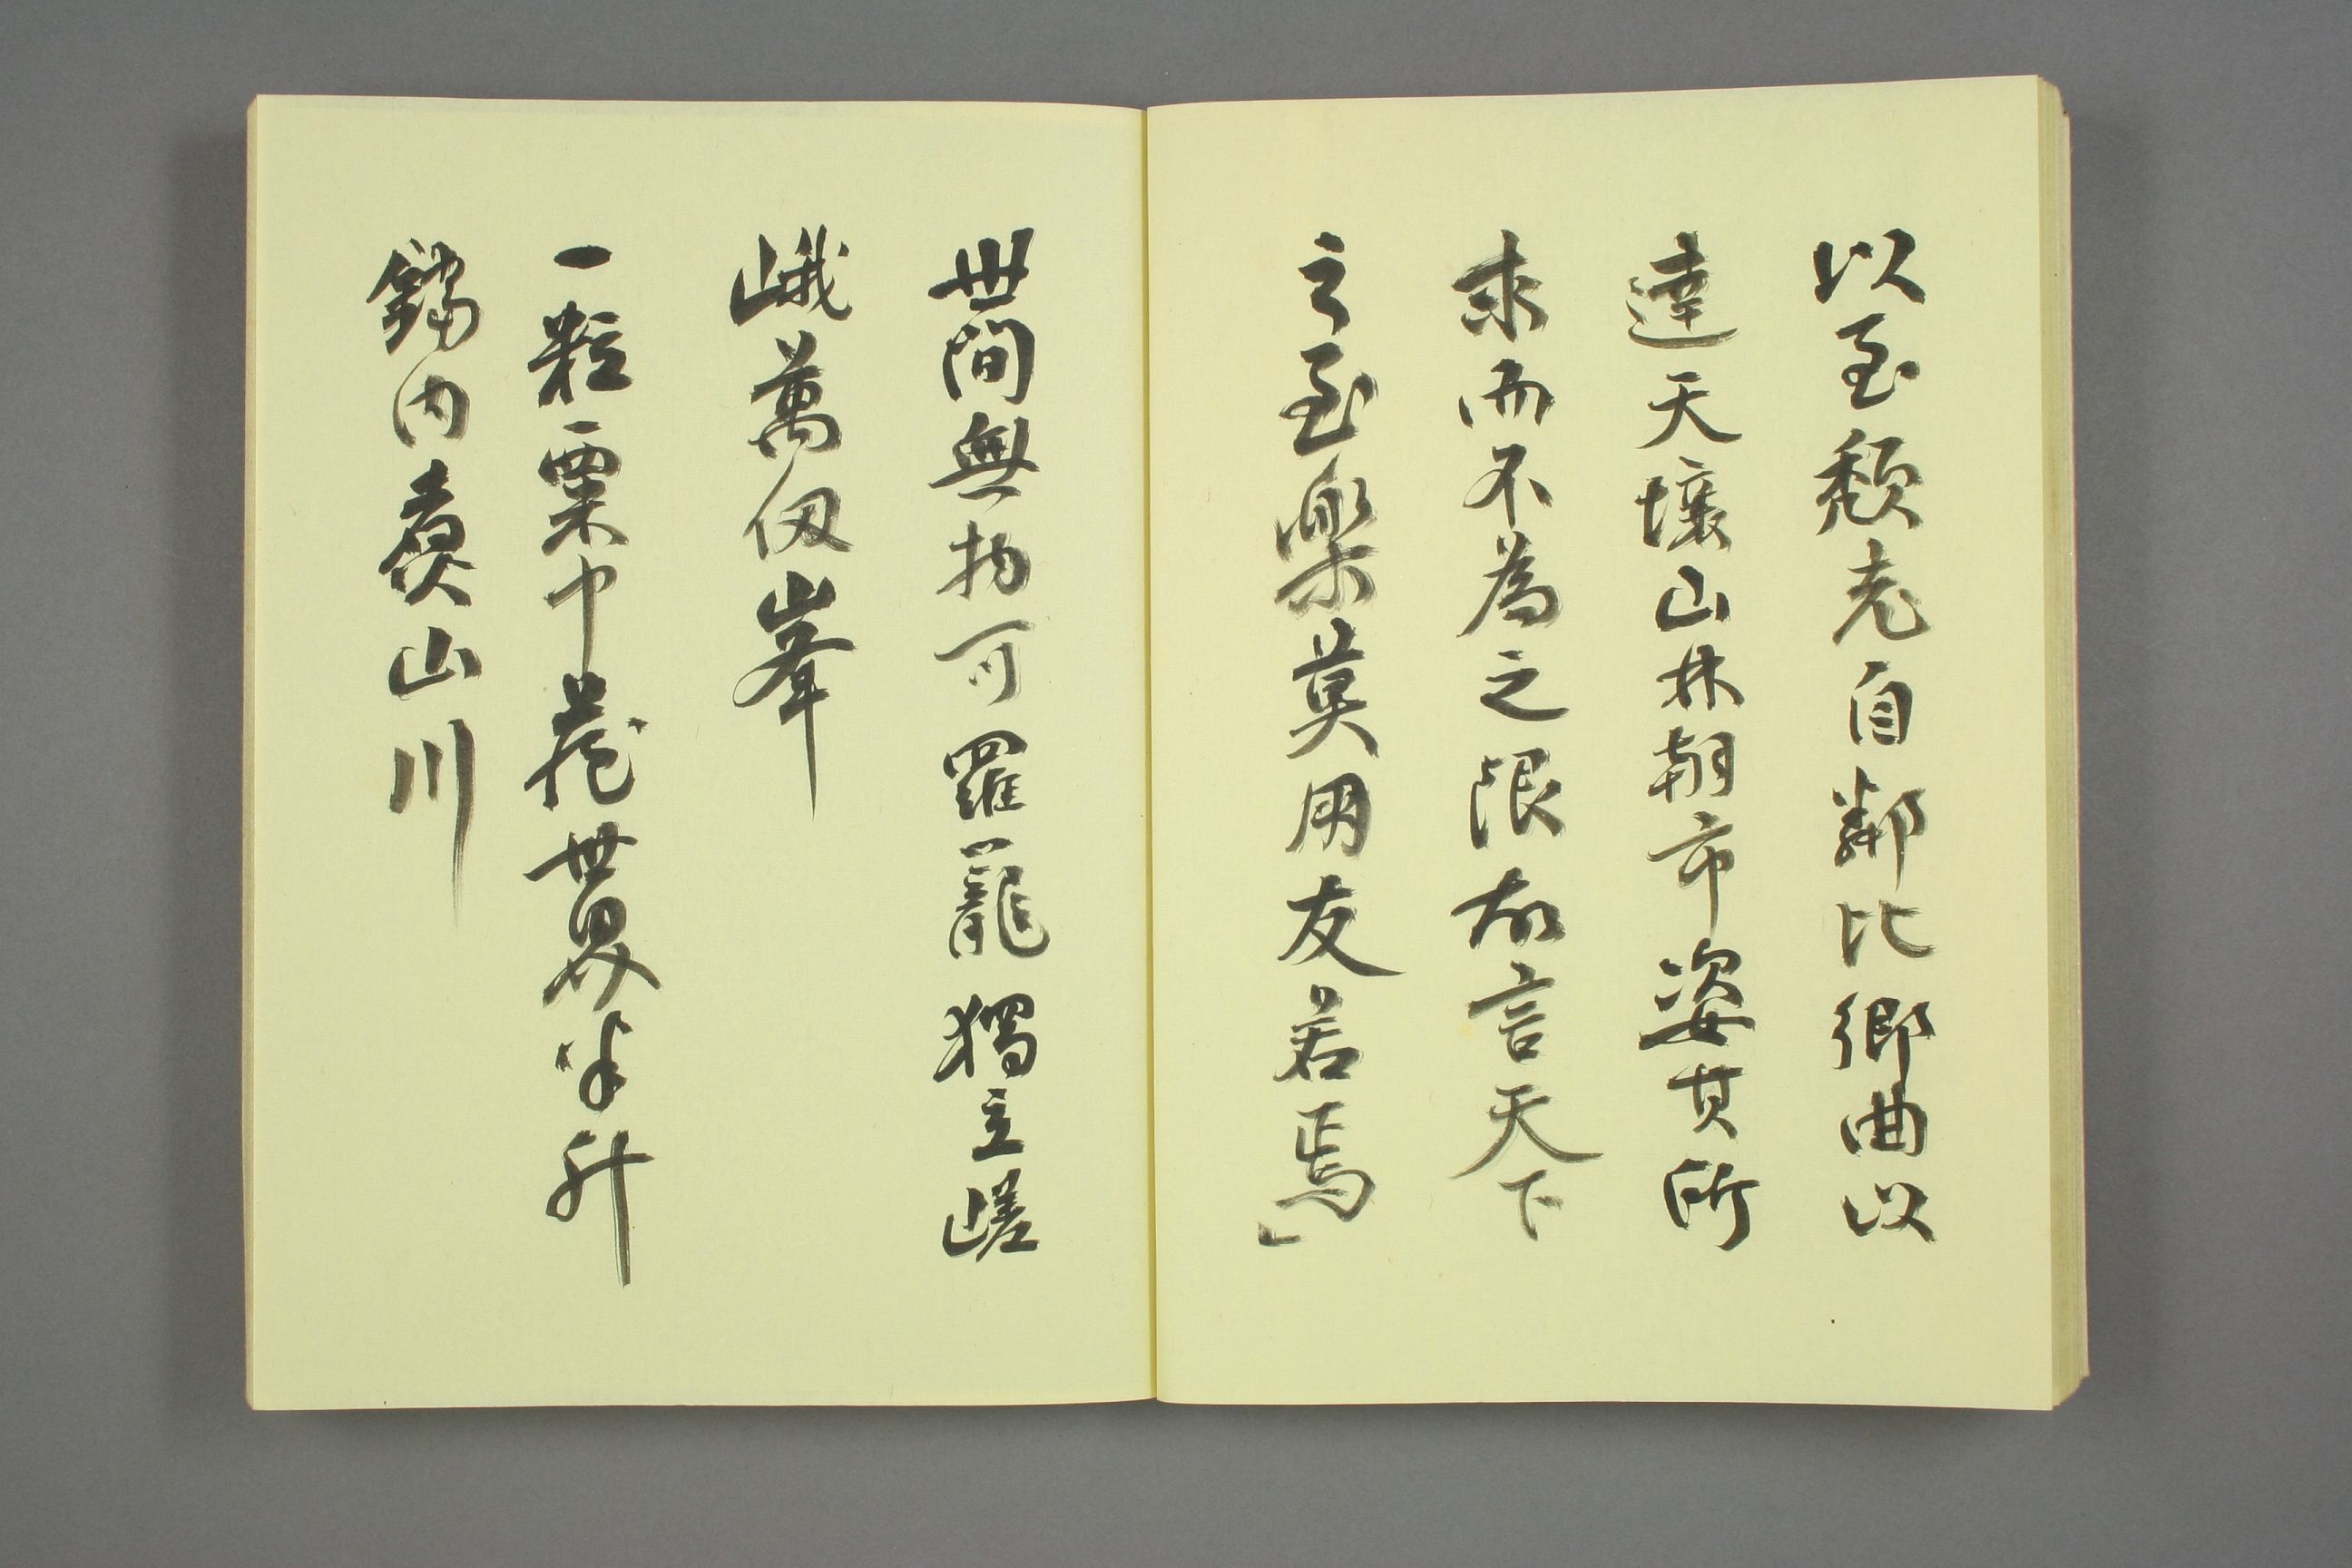 以至頽老自鄰比郷曲以
達天壌山林朝市姿其所
求而不為之限故言天下
之至樂莫用友若焉」
世間無物可羅籠獨立嵯
峨萬仭峯
一粒粟中蔵世界半升
鐺内煮山川